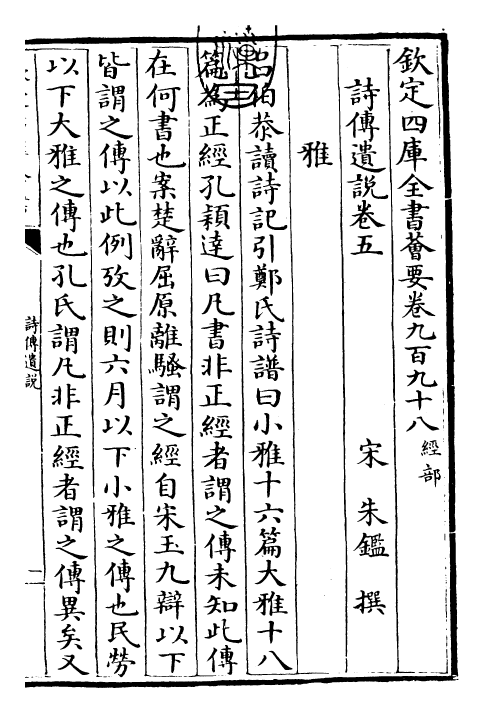 欽定四庫全書薈要卷九百九十八 經部
詩傳遺說卷五
宋 朱鑑 撰
雅
呂伯恭讀詩記引鄭氏詩譜曰小雅十六篇大雅十八
篇為正經孔穎達曰凡書非正經者謂之傳未知此傳
在何書也案楚辭屈原離騷謂之經自宋玉九辯以下
皆謂之傳以此例攷之則六月以下小雅之傳也民勞
以下大雅之傳也孔氏謂凡非正經者謂之傳異矣又
詩傳遺說